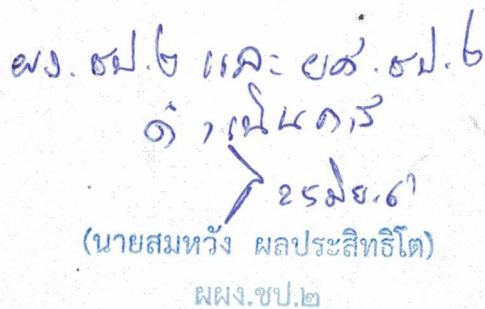 ผง.ชป.๒ และ ยศ.ชป.๒
ดำเนินการ
25 มิย.61
(นายสมหวัง ผลประสิทธิโต)
ผผง.ชป.๒